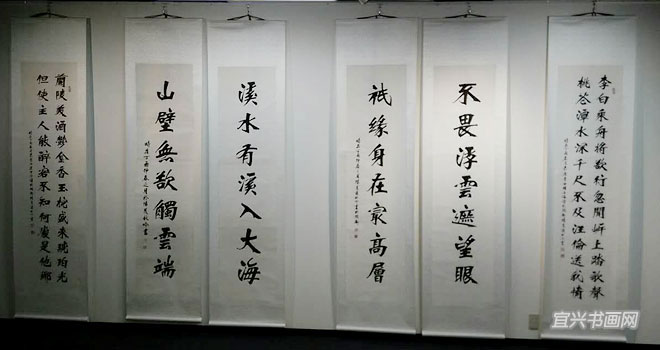 李白乘舟将欲行忽聞岸上踏歌聲
桃花潭水深千尺不及汪倫送我情
不畏浮雲遮望眼
祇緣身在最高層
溪水有溪入大海
山壁無欲觸雲端
蘭陵美酒鬱金香玉椀盛來琥珀光
但使主人能醉客不知何處是他鄉
宜兴书画网